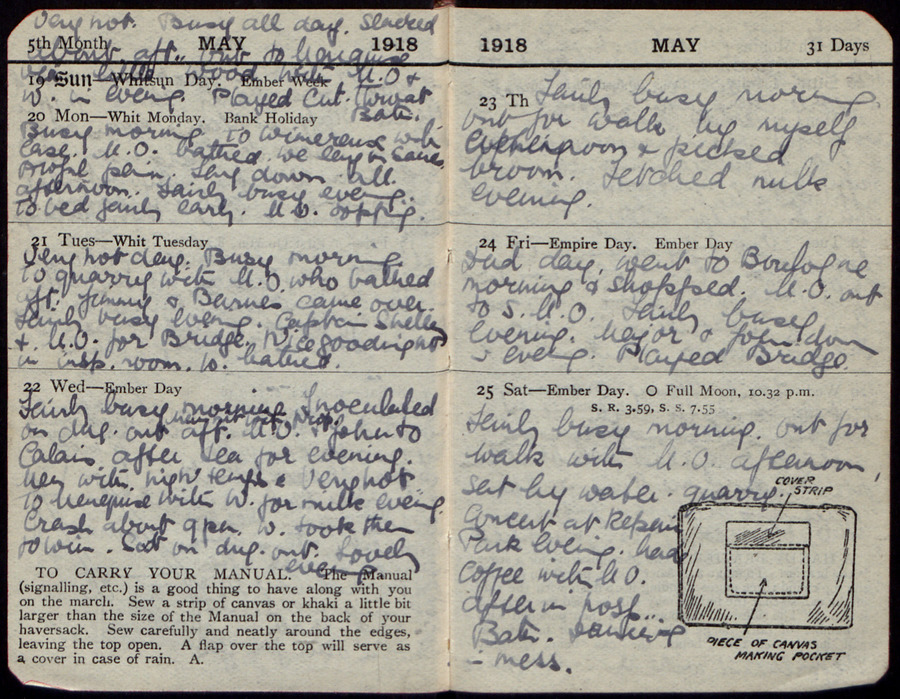 Very hot. Busy all day. Slacked
5th Month MAY 1918
about aft. Out to
wood with M.O &
19 Sun—Whitsun Day. Ember Week
W. in evening. Played Cut-throat
20 Mon—Whit Monday. Bank Holiday
Busy morning. To Wimereux with
case. M.O. bathed. We lay in
down all
afternoon. Fairly busy evening.
To bed fairly early. M.O. topping.
21 Tues—Whit Tuesday
Very hot day. Busy morning
To quarry with M.O who bathed
aft. Jimmy & Barnes came over.
Fairly busy evening. Captain
+ M.O. for Bridge. Nice goodnight
in room. W.
22 Wed—Ember Day
Fairly busy morning Inoculated
on duty. out aft. M.O. & John to
Calais after tea for evening.
Men with high temps & Very hot
To with W. for milk evening
Crash about 9pm. W. took them
to Wim. Sat on dug-out. Lovely
evening
TO CARRY YOUR MANUAL. The Manual
(signalling, etc.) is a good thing to have along with you
on the march. Sew a strip of canvas or khaki a little bit
larger than the size of the Manual on the back of your
haversack. Sew carefully and neatly around the edges,
leaving the top open. A flap over the top will serve as
a cover in case of rain. A.
1918 MAY 31 Days
23 Th Fairly busy morning
out for walk by myself
afternoon & picked
broom. Fetched milk
evening.
24 Fri—Empire Day. Ember Day
Dud day, went to Boulogne
morning & shopped. M.O. out
to S.M.O. Fairly busy
evening. Major & John down
evening. Played Bridge.
25 Sat—Ember Day. O Full Moon, 10.32 p.m.
S. R. 3.59, S. S. 7.55
Fairly busy morning. out for
walk with M.O. afternoon,
sat by water-quarry.
Concert at Repair
Park evening. had
Coffee with M.O.
after in hosp.
Bath. Dancing
in mess.
COVER
STRIP
PIECE OF CANVAS
MAKING POCKET